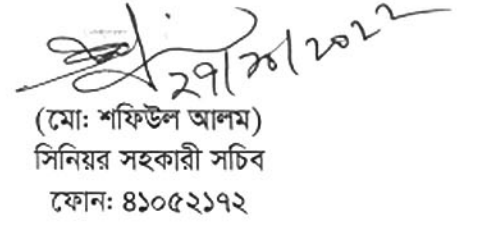 ২৭/১০/২০২২
(মো: শফিউল আলম)
সিনিয়র সহকারী সচিব
ফোন: ৪১০৫২১৭২